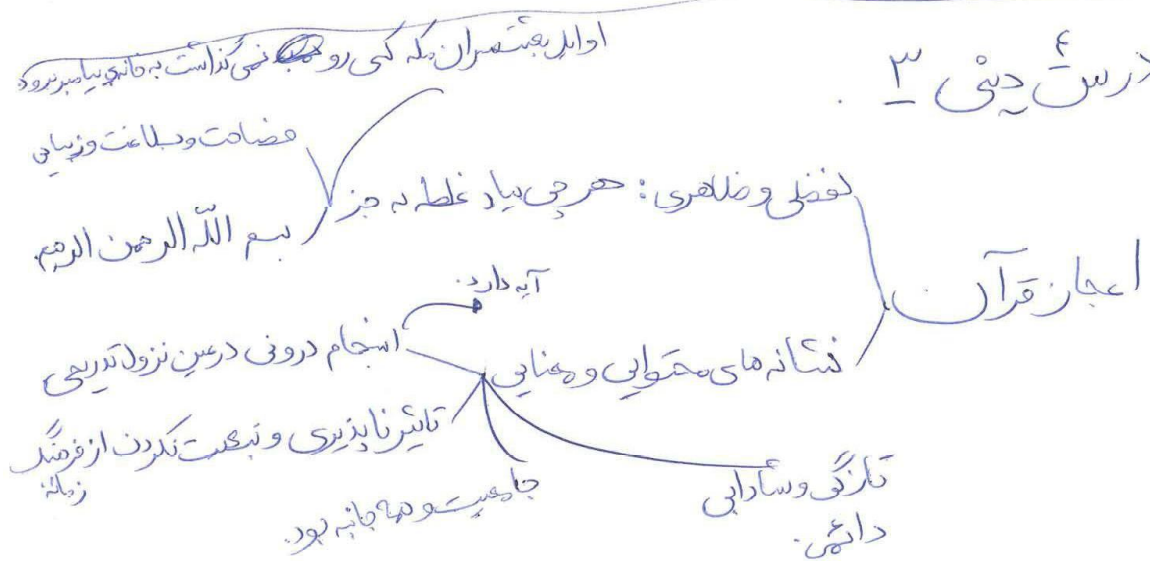 درس ۴ دینی ۳.
اعجاز قرآن
لفظی و ظاهری: هر چی بیاد غلطه به جز
اوایل بعثت سران مکه کسی رو نمی‌گذاشت به خانه‌ی پیامبر برود
فصاحت و بلاغت و زیبایی
بسم اللّه الرحمن الرحیم.
نشانه‌های محتوایی و معنایی
آیه دارد.
انسجام درونی در عین نزول تدریجی
تاثیر ناپذیری و تبعیت نکردن از فرهنگ
زمانه
جامعیت و همه جانبه بود.
تازگی و شادابی
دائمی.